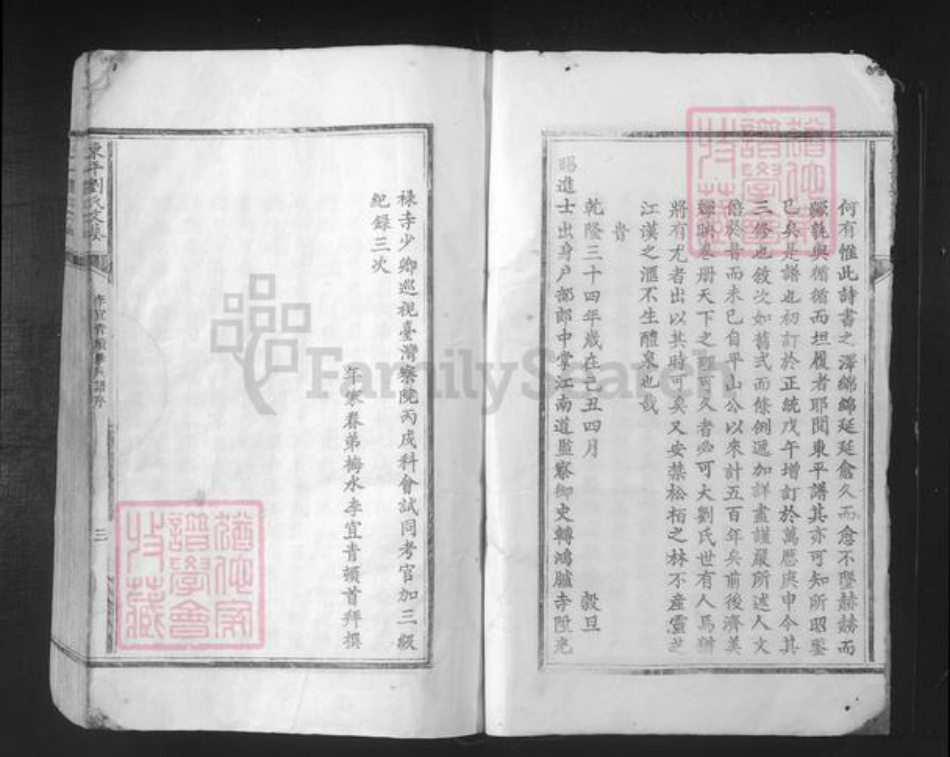 何有惟此詩書之澤綿綿延延愈久而愈不墜赫赫而
與循循而坦履者耶閱東平譜其亦可知所昭鑒
已矣是譜也初訂於正統戊午增訂於萬應庚申今其
三修也敘次如舊式而條例遞加詳盡謹嚴所述人文
倍於昔而未已自平山公以來計五百年矣前後濟美
輝映卷册天下之理可久者必可大劉氏世有人焉
將有尤者出以其時可矣又安禁松栢之林不產靈芝
江漢之滙不生醴泉也哉
旹
乾隆三十四年歲在己丑四月 穀旦
賜進士出身戶部郎中掌江南道監察御史轉鴻臚寺陞光
祿寺少卿巡視臺灣察院丙戌科會試同考官加三級
紀錄三次
年寒眷弟梅水李宜青頓首拜撰
東平劉氏
李宜青
三
猶他家
譜學會
收藏
猶他家
譜學會
收藏
FamilySearch